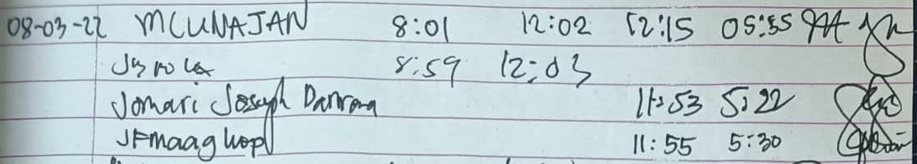 08-03-22 MCUNAJAN 8:01 12:02 12:15 05:55
8:59 12:03
Jomari Joseph 11:53 5:22
JFmaaghop 11:55 5:30